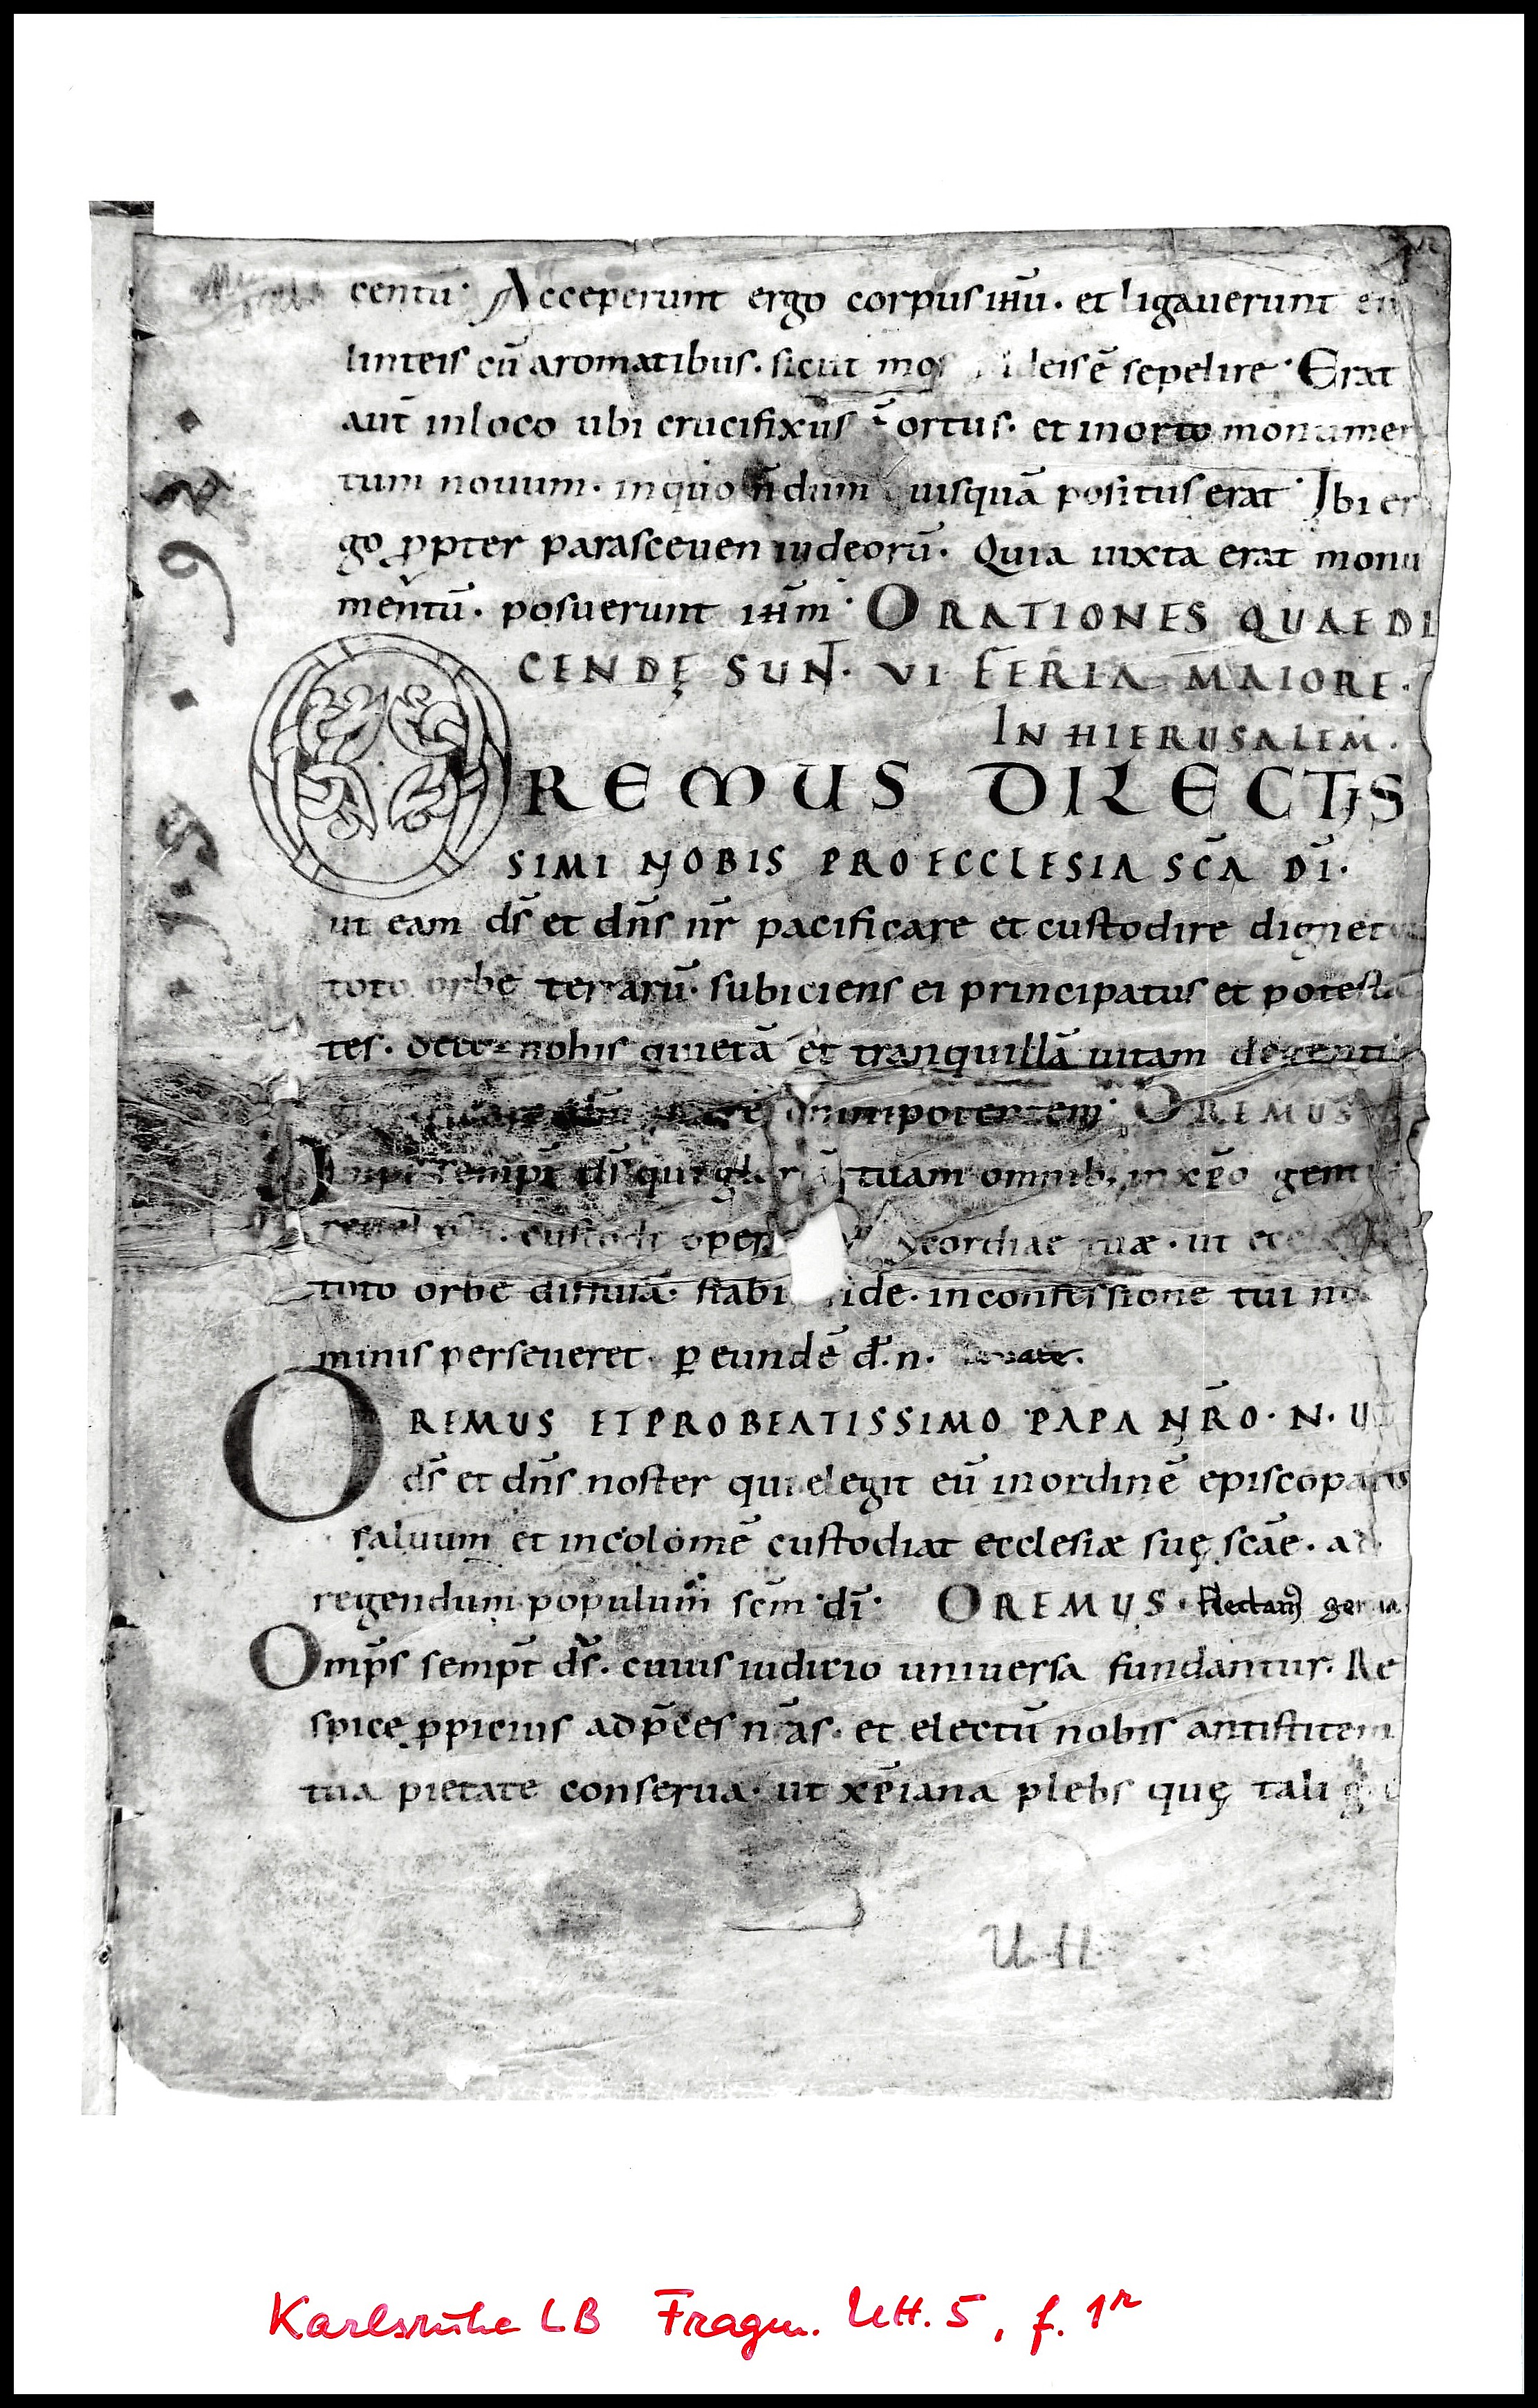 centu· Acceperunt ergo corpus ihu̅· et ligauerunt
linteis cu̅ aromatibus· sicut mos e̅ sepelire· Erat
aut̅ inloco ubi crucifixus ortus· et inorto monumen
tum nouum· inquo n̅dum quisqua̅ positus erat· Ibi er
go ꝓpter parasceuen iudeoru̅· Quia iuxta erat monu
mentu̅· posuerunt ihm̅· ORATIONES QUAE DI
CENDĘ SUNT· VI FERIA MAIORE·
IN HIERUSALEM·
OREMUS DILECTIS
SIMI NOBIS PRO ECCLESIA SC̅A DI̅·
ut eam ds̅ et dn̅s nr̅ pacificare et custodire dignetur
toto orbe terraru̅· subiciens ei principatus et potesta
tes· detq; nobis quieta̅ et tranquilla̅ uitam degenti
omnipotentem· OREMUS
semp̅t ds̅ qui tuam omnib; in xp̅o gent
custodi opera tuae· ut
toto orbe diffusa̅· inconfessione tui no
minis perseueret· ꝑ eunde̅ d̅·n·
OREMUS ET PRO BEATISSIMO PAPA NR̅O· N· UT
ds̅ et dn̅s noster qui elegit eu̅ inordine̅ episcopatus
saluum et incolome̅ custodiat ecclesiæ suę sca̅e· ad
regendum populum scm̅ di̅· OREMUS· Flectam; genua
Omp̅s semp̅t ds̅· cuius iudicio uniuersa fundantur· Re
spice ꝓpicius ad p̅ces n̅as· et electu̅ nobis antistitem
tua pietate conserua· ut xp̅iana plebs quę tali
U H
Karlsruhe LB Fragm. UH. 5, f. 1r